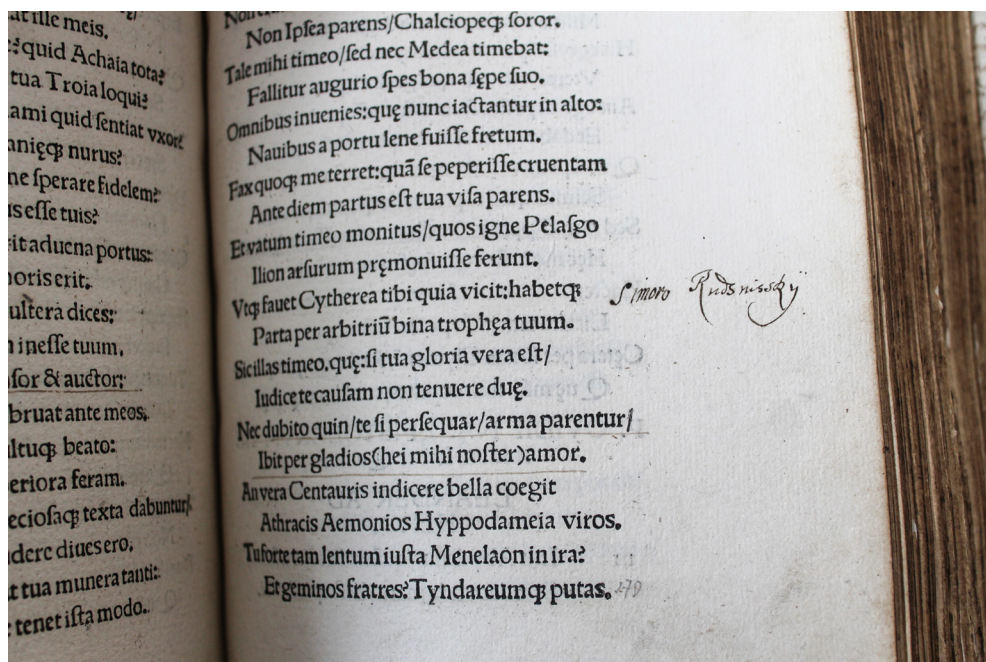 at ille meis.
quid Achaia tota?
tua Troia loqui?
ami quid sentiat vxor?
nięq; nurus?
ne sperare fidelem?
s esse tuis?
it aduena portus:
oris erit.
ultera dices:
inesse tuum.
sor & auctor:
bruat ante meos.
ltuq; beato:
eriora feram.
eciosaq; texta dabuntur/
dere diues ero.
t tua munera tanti:
tenet ista modo.
Non Ipsea parens/Chalciopeq; soror.
Tale mihi timeo/sed nec Medea timebat:
Fallitur augurio spes bona sępe suo.
Omnibus inuenies:quę nunc iactantur in alto:
Nauibus a portu lene fuisse fretum.
Fax quoq; me terret:quā se peperisse cruentam
Ante diem partus est tua visa parens.
Et vatum timeo monitus/quos igne Pelasgo
Ilion arsurum pręmonuisse ferunt.
Vtq; fauet Cytherea tibi quia vicit:habetq;
Parta per arbitriū bina trophęa tuum.
Sic illas timeo.quę:si tua gloria vera est/
Iudice te causam non tenuere duę.
Nec dubito quin/te si persequar/arma parentur/
Ibit per gladios(hei mihi noster)amor.
An vera Centauris indicere bella coegit
Athracis Aemonios Hyppodameia viros.
Tu forte tam lentum iusta Menelaon in ira?
Et geminos fratres?Tyndareumq; putas. 179